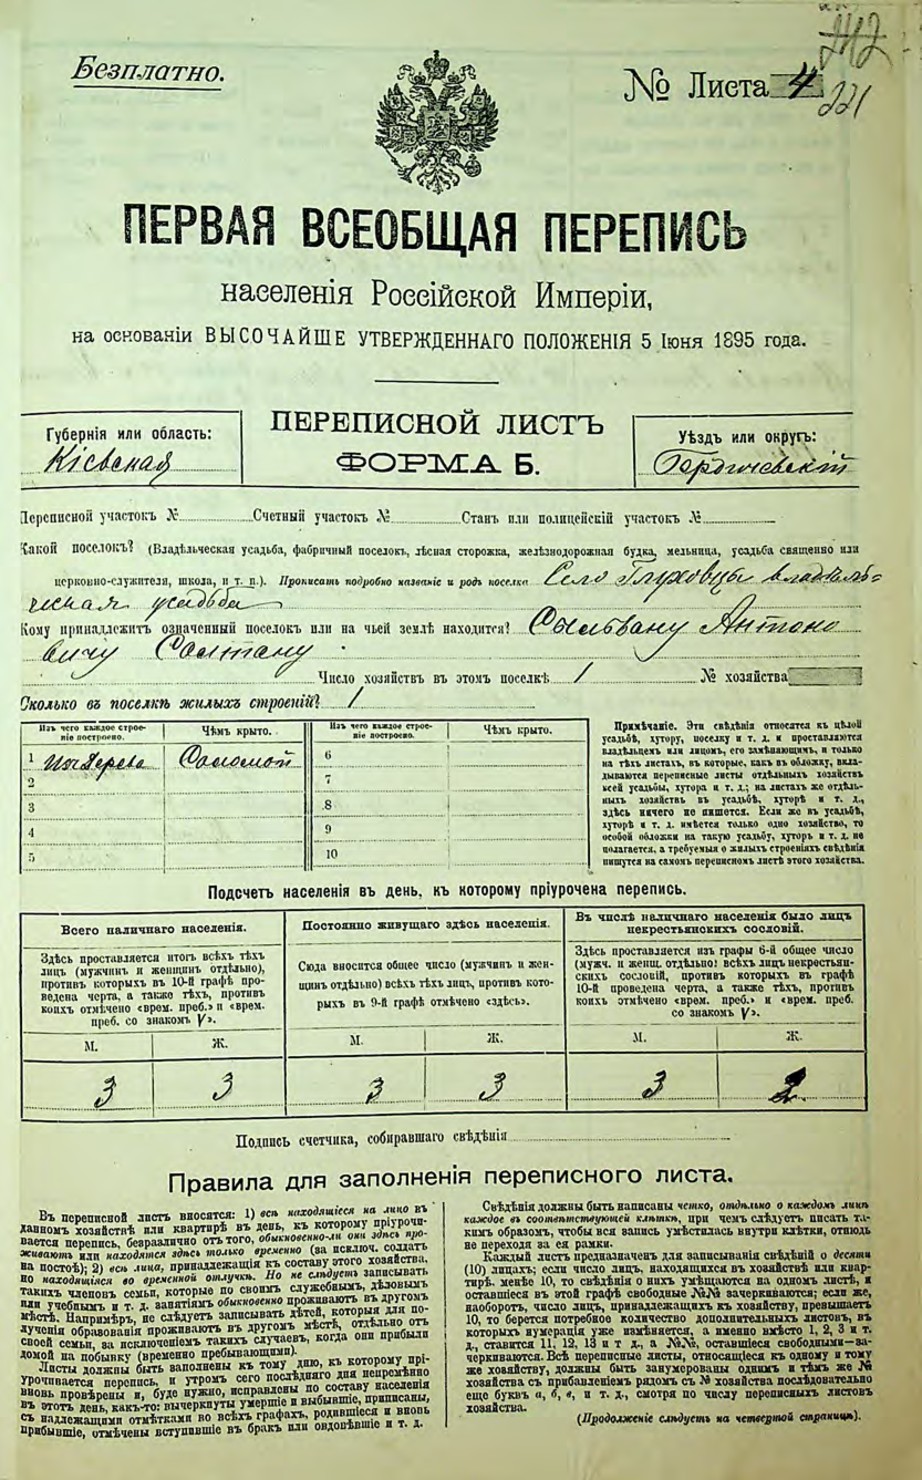 Безплатно.
№ Листа 4
242
221
ПЕРВАЯ ВСЕОБЩАЯ ПЕРЕПИСЬ
населенія Россійской Имперіи,
на основаніи ВЫСОЧАЙШЕ УТВЕРЖДЕННАГО ПОЛОЖЕНІЯ 5 Іюня 1895 года.
Губернія или область:
Кіевская
ПЕРЕПИСНОЙ ЛИСТЪ
ФОРМА Б.
Уѣздъ или округъ:
Бердичевскій
Переписной участокъ № Счетный участокъ № Станъ или полицейскій участокъ №
Какой поселокъ? (Владѣльческая усадьба, фабричный поселокъ, лѣсная сторожка, желѣзнодорожная будка, мельница, усадьба священно или
церковно-служителя, школа, и т. п.). Прописать подробно названіе и родъ поселка Село Глуховцы владѣль=
ческая усадьба
Кому принадлежитъ означенный поселокъ или на чьей землѣ находится? Сыльвану Антоно
вичу Солтану
Число хозяйствъ въ этомъ поселкѣ 1 № хозяйства
Сколько въ поселкѣ жилыхъ строеній? 1
Изъ чего каждое строе-
ніе построено.
Чѣмъ крыто.
Изъ чего каждое строе-
ніе построено.
Чѣмъ крыто.
1 Изъ дерева Соломой 6
2 7
3 8
4 9
5 10
Примѣчаніе. Эти свѣдѣнія относятся къ цѣлой
усадьбѣ, хутору, поселку и т. д. и проставляются
владѣльцемъ или лицомъ, его замѣняющимъ, и только
на тѣхъ листахъ, въ которые, какъ въ обложку, вкла-
дываются переписные листы отдѣльныхъ хозяйствъ
всей усадьбы, хутора и т. д.; на листахъ же отдѣль-
ныхъ хозяйствъ въ усадьбѣ, хуторѣ и т. д.,
здѣсь ничего не пишется. Если же въ усадьбѣ,
хуторѣ и т. д. имѣется только одно хозяйство, то
особой обложки на такую усадьбу, хуторъ и т. д. не
полагается, а требуемыя о жилыхъ строеніяхъ свѣдѣнія
пишутся на самомъ переписномъ листѣ этого хозяйства.
Подсчетъ населенія въ день, къ которому пріурочена перепись.
Всего наличнаго населенія.
Здѣсь проставляется итогъ всѣхъ тѣхъ
лицъ (мужчинъ и женщинъ отдѣльно),
противъ которыхъ въ 10-й графѣ про-
ведена черта, а также тѣхъ, противъ
коихъ отмѣчено «врем. преб.» и «врем.
преб. со знакомъ V».
Постоянно живущаго здѣсь населенія.
Сюда вносится общее число (мужчинъ и жен-
щинъ отдѣльно) всѣхъ тѣхъ лицъ, противъ кото-
рыхъ въ 9-й графѣ отмѣчено «здѣсь».
Въ числѣ наличнаго населенія было лицъ
некрестьянскихъ сословій.
Здѣсь проставляется изъ графы 6-й общее число
(мужч. и женщ. отдѣльно) всѣхъ лицъ некрестьян-
скихъ сословій, противъ которыхъ въ графѣ
10-й проведена черта, а также тѣхъ, противъ
коихъ отмѣчено «врем. преб.» и «врем. преб.
со знакомъ V».
М. Ж. М. Ж. М. Ж.
3 3 3 3 3 2
Подпись счетчика, собиравшаго свѣдѣнія
Правила для заполненія переписного листа.
Въ переписной листъ вносятся: 1) всѣ находящіеся на лицо въ
данномъ хозяйствѣ или квартирѣ въ день, къ которому пріурочи-
вается перепись, безразлично отъ того, обыкновенно-ли они здѣсь про-
живаютъ или находятся здѣсь только временно (за исключ. солдатъ
на постоѣ); 2) всѣ лица, принадлежащія къ составу этого хозяйства,
но находящіяся во временной отлучкѣ. Но не слѣдуетъ записывать
такихъ членовъ семьи, которые по своимъ служебнымъ, дѣловымъ
или учебнымъ и т. д. занятіямъ обыкновенно проживаютъ въ другомъ
мѣстѣ. Напримѣръ, не слѣдуетъ записывать дѣтей, которыя для по-
лученія образованія проживаютъ въ другомъ мѣстѣ, отдѣльно отъ
своей семьи, за исключеніемъ такихъ случаевъ, когда они прибыли
домой на побывку (временно пребывающими).
Листы должны быть заполнены къ тому дню, къ которому прі-
урочивается перепись, и утромъ сего послѣдняго дня непремѣнно
вновь провѣрены и, буде нужно, исправлены по составу населенія
въ этотъ день, какъ-то: вычеркнуты умершіе и выбывшіе, приписаны,
съ надлежащими отмѣтками во всѣхъ графахъ, родившіеся и вновь
прибывшіе, отмѣчены вступившіе въ бракъ или овдовѣвшіе и т. д.
Свѣдѣнія должны быть написаны четко, отдѣльно о каждомъ лицѣ
каждое въ соотвѣтствующей клѣткѣ, при чемъ слѣдуетъ писать та-
кимъ образомъ, чтобы вся запись умѣстилась внутри клѣтки, отнюдь
не переходя за ея рамки.
Каждый листъ предназначенъ для записыванія свѣдѣній о десяти
(10) лицахъ; если число лицъ, находящихся въ хозяйствѣ или квар-
тирѣ, менѣе 10, то свѣдѣнія о нихъ умѣщаются на одномъ листѣ, и
оставшіеся въ этой графѣ свободные №№ зачеркиваются; если же,
наоборотъ, число лицъ, принадлежащихъ къ хозяйству, превышаетъ
10, то берется потребное количество дополнительныхъ листовъ, въ
которыхъ нумерація уже измѣняется, а именно вмѣсто 1, 2, 3 и т.
д., ставится 11, 12, 13 и т. д., а №№, оставшіеся свободными—за-
черкиваются. Всѣ переписные листы, относящіеся къ одному и тому
же хозяйству, должны быть занумерованы однимъ и тѣмъ же №
хозяйства съ прибавленіемъ рядомъ съ № хозяйства послѣдовательно
еще буквъ а, б, в, и т. д., смотря по числу переписныхъ листовъ
хозяйства.
(Продолженіе слѣдуетъ на четвертой страницѣ).